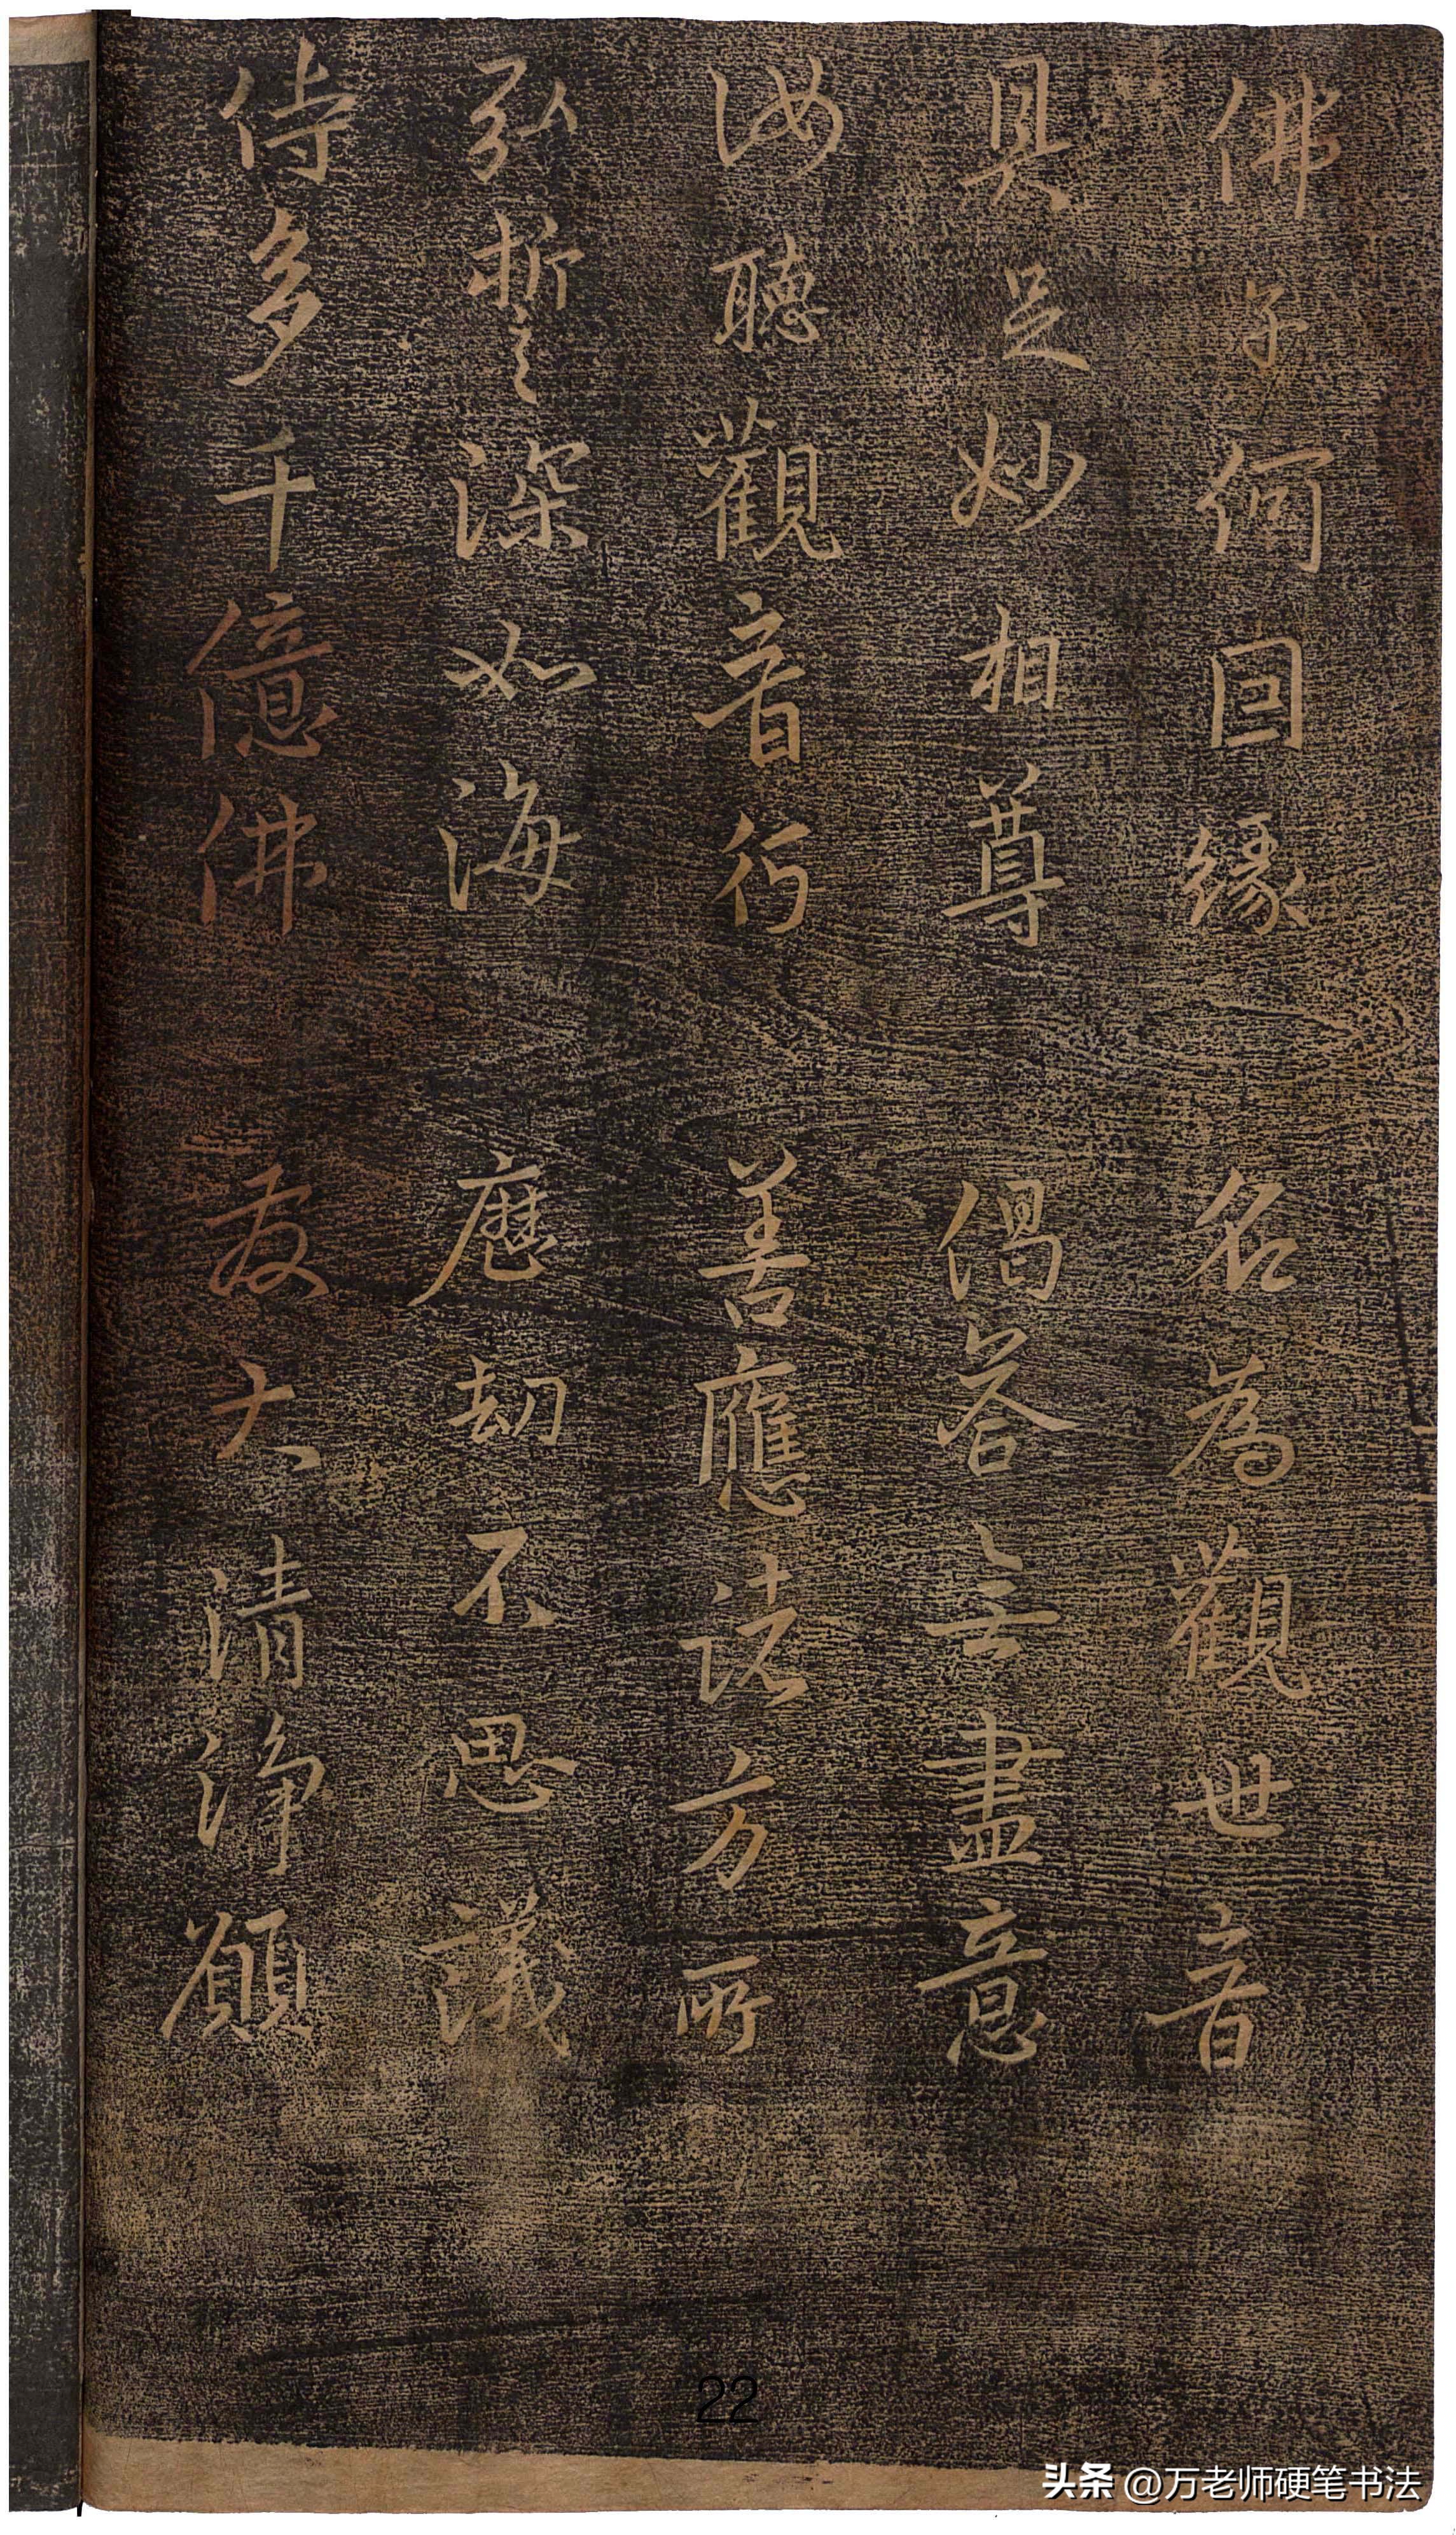 佛子何因緣　名為觀世音
具足妙相尊　偈答無盡意
汝聽觀音行　善應諸方所
弘誓之深如海　歷劫不思議
侍多千億佛　發大清淨願
22
头条 @万老师硬笔书法